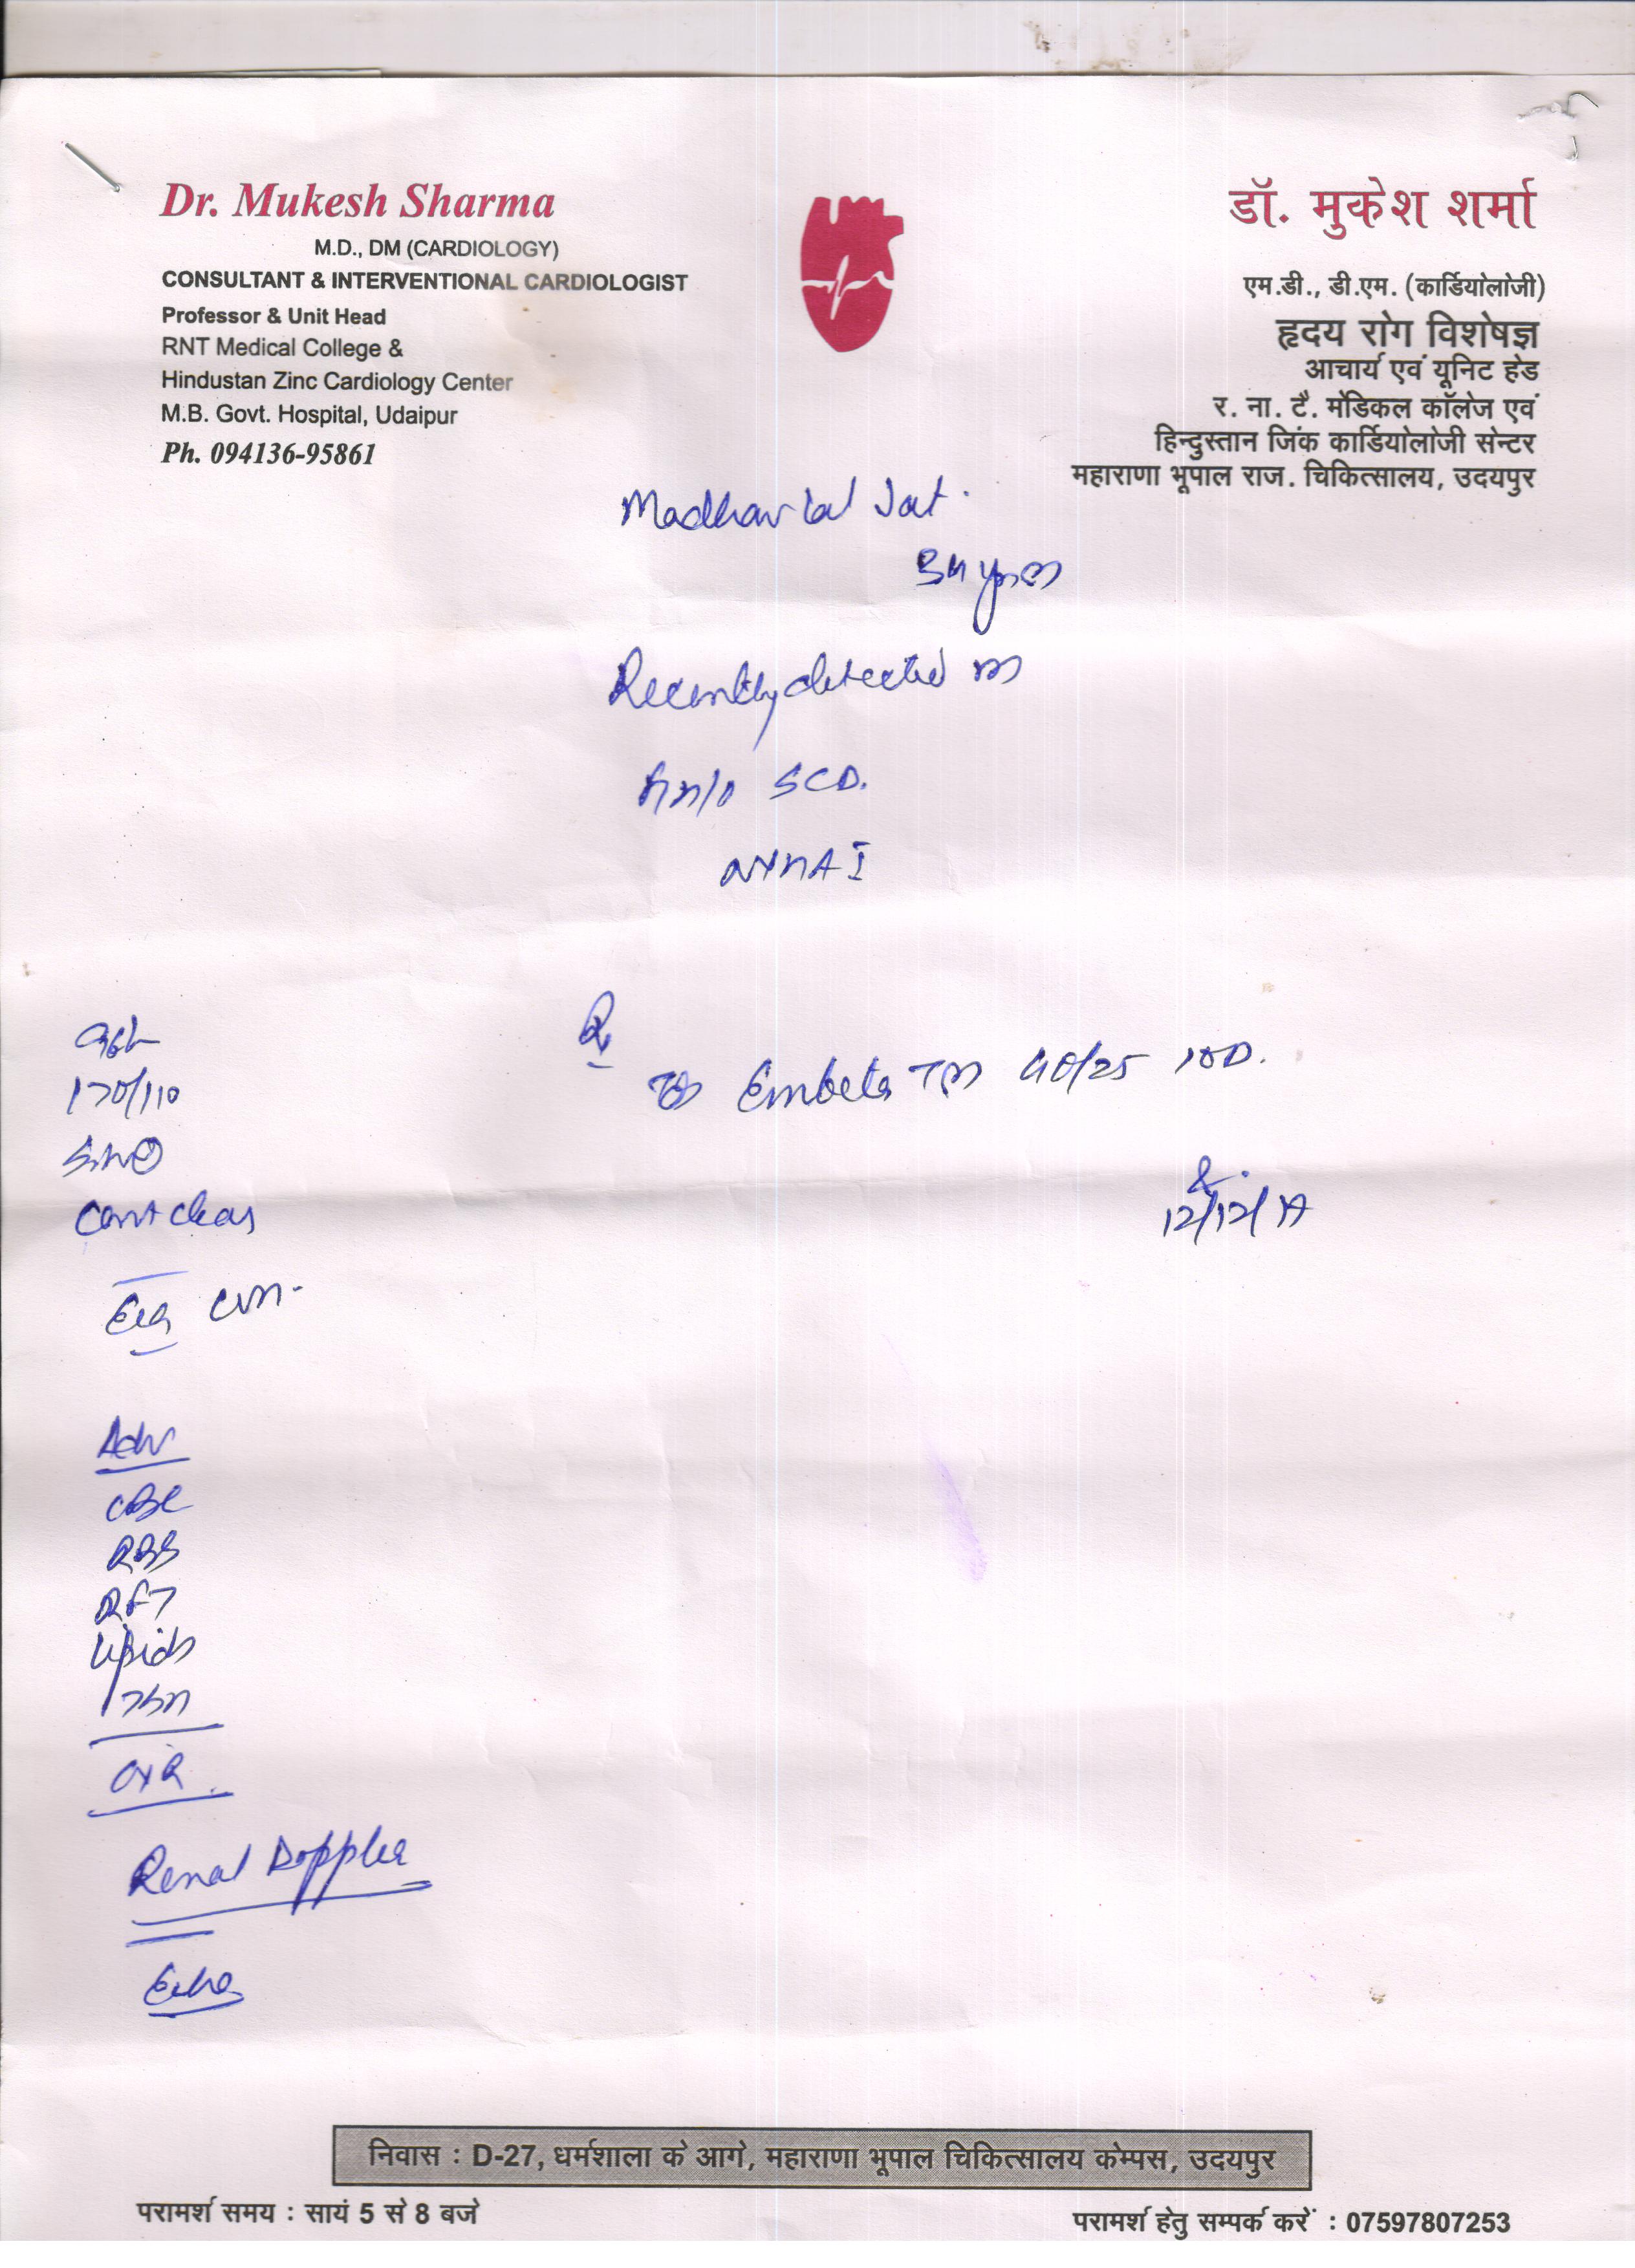 Dr. Mukesh Sharma
M.D., DM (CARDIOLOGY)
CONSULTANT & INTERVENTIONAL CARDIOLOGIST
Professor & Unit Head
RNT Medical College &
Hindustan Zinc Cardiology Center
M.B. Govt. Hospital, Udaipur
Ph. 094136-95861
डॉ. मुकेश शर्मा
एम.डी., डी.एम. (कार्डियोलोजी)
हृदय रोग विशेषज्ञ
आचार्य एवं यूनिट हेड
र. ना. टै. मेडिकल कॉलेज एवं
हिन्दुस्तान जिंक कार्डियोलोजी सेन्टर
महाराणा भूपाल राज. चिकित्सालय, उदयपुर
Madhav lal Jat.
Recently detected
SCD.
NYHA I
170/110
Chest clear
Rx
Embeta TM 40/25 1OD.
12/12/
Adv
CBC
RBS
RFT
Lipids
TSH
CXR.
Renal Doppler
Echo
निवास : D-27, धर्मशाला के आगे, महाराणा भूपाल चिकित्सालय केम्पस, उदयपुर
परामर्श समय : सायं 5 से 8 बजे
परामर्श हेतु सम्पर्क करें : 07597807253